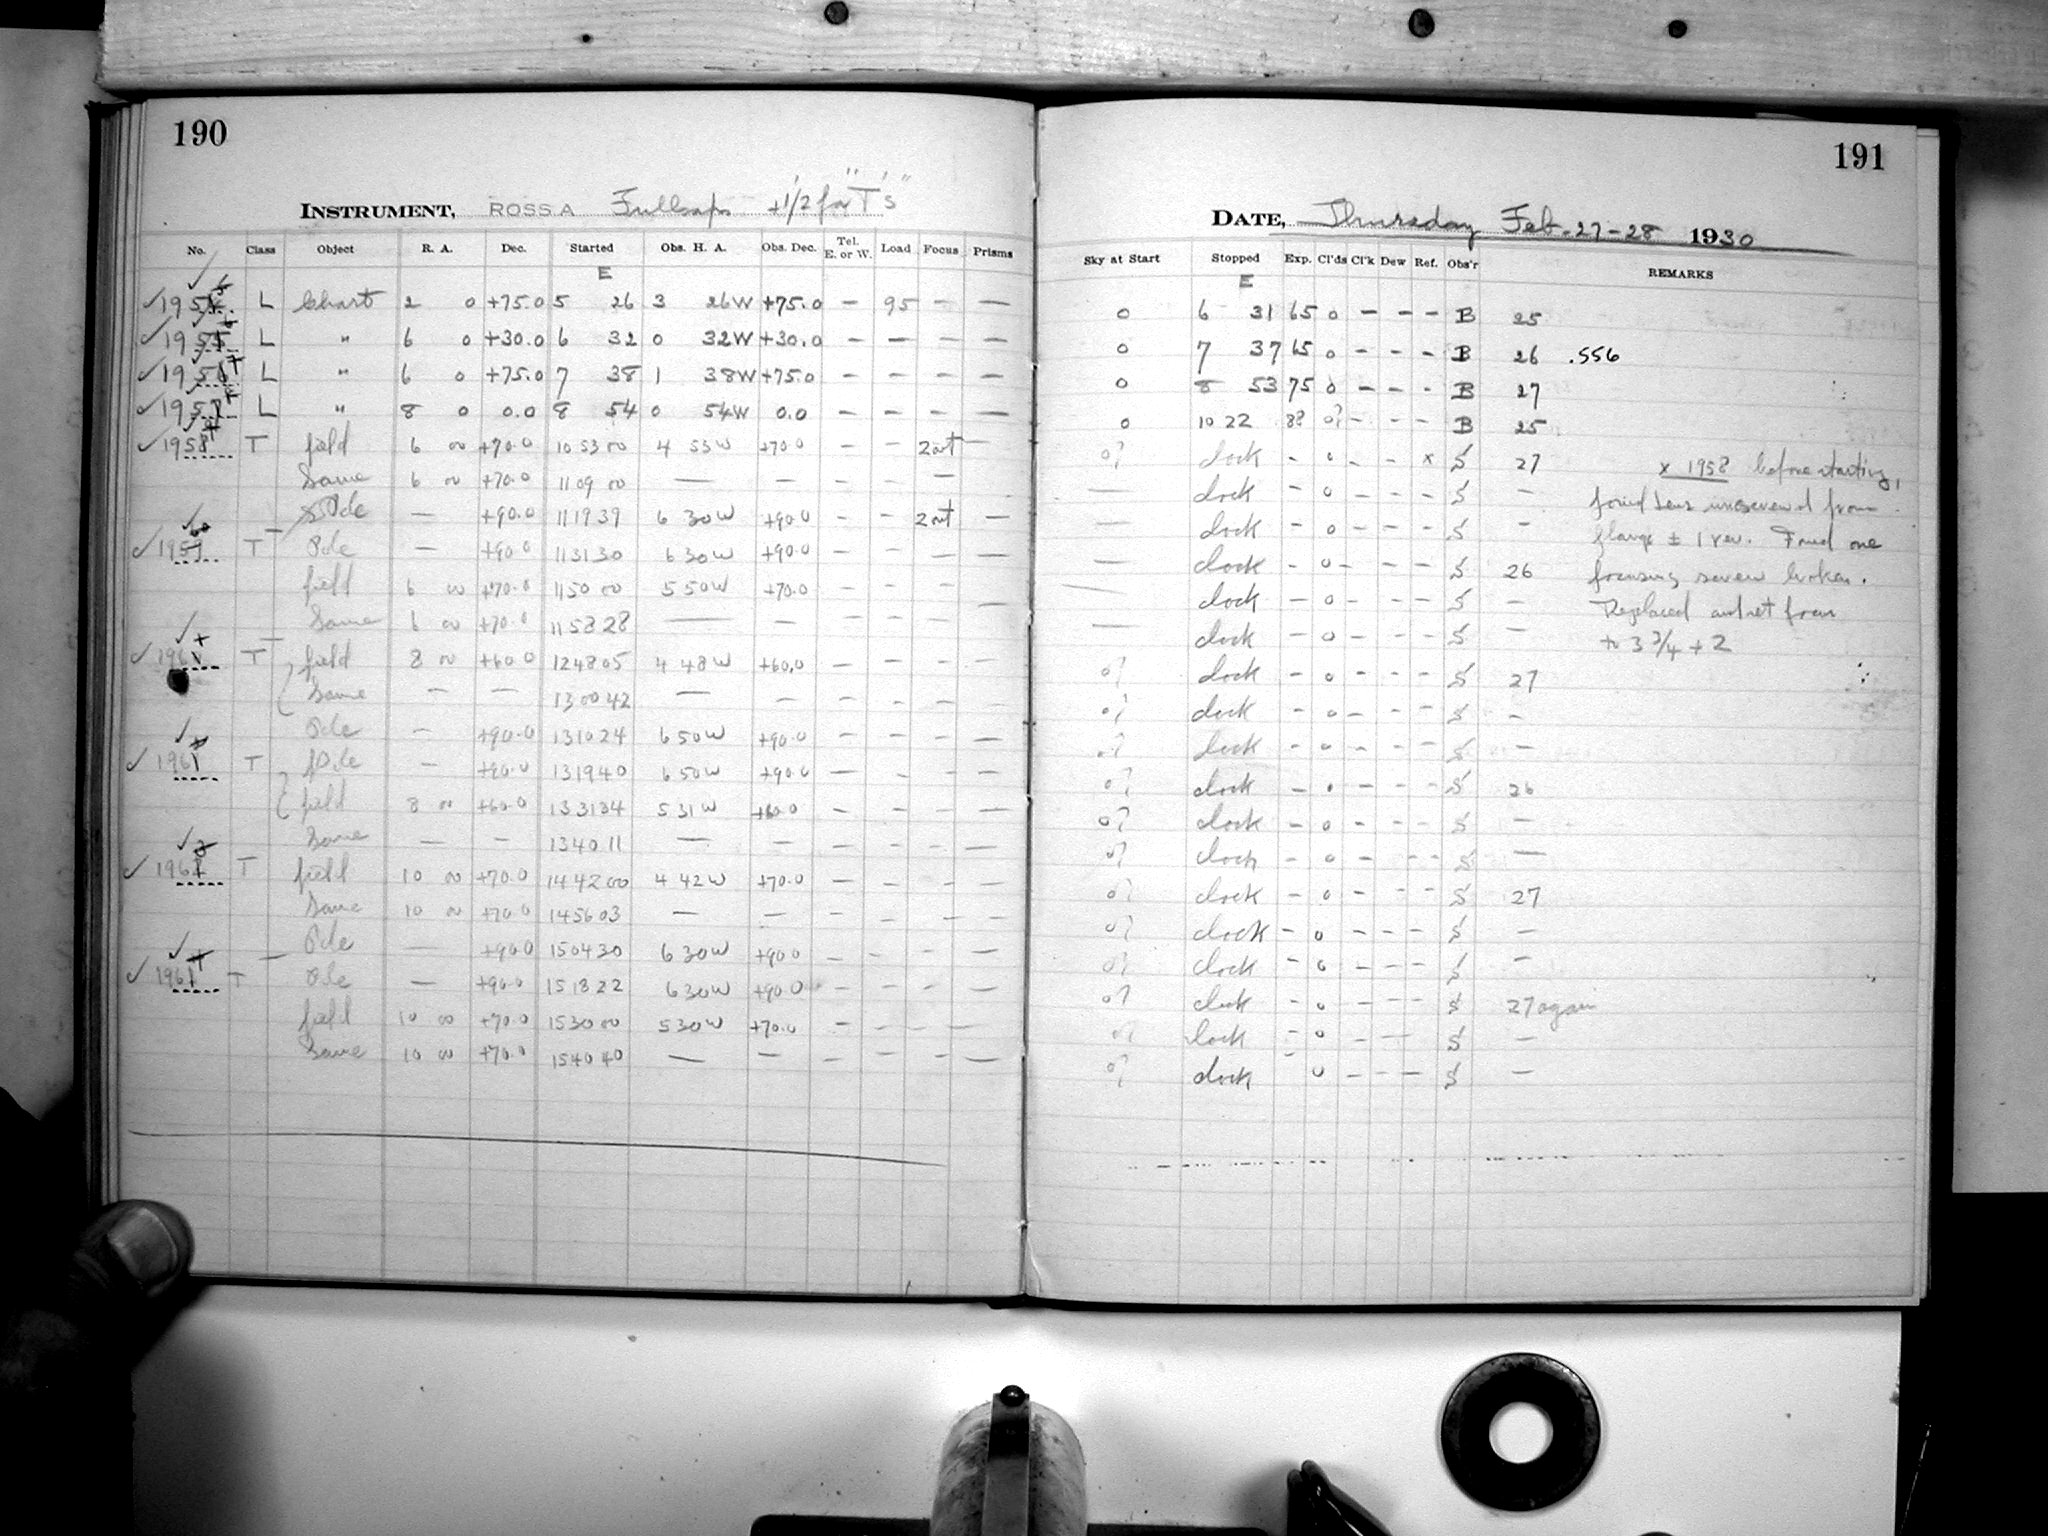 190
INSTRUMENT, ROSS A Fullcaps +1/2 for "T's"
No. Class Object R. A. Dec. Started Obs. H. A. Obs. Dec. Tel. E. or W. Load Focus Prisms
E
L Chart 2 0 +75.0 5 26 3 26W +75.0 — 95 — —
L " 6 0 +30.0 6 32 0 32W +30.0 — — — —
L " 6 0 +75.0 7 38 1 38W +75.0 — — — —
L " 8 0 0.0 8 54 0 54W 0.0 — — — —
1958 T field 6 00 +70.0 10 53 00 4 53W +70.0 — — 2out —
Same 6 00 +70.0 11 09 00 — — — — —
Pole — +90.0 11 19 39 6 30W +90.0 — — 2out —
1959 T Pole — +90.0 11 31 30 6 30W +90.0 — — —
field 6 00 +70.0 11 50 00 5 50W +70.0 — — — —
Same 6 00 +70.0 11 58 28 — — — — —
T field 8 00 +60.0 12 48 05 4 48W +60.0 — — — —
Same — — 13 00 42 — — — — — —
Pole — +90.0 13 10 24 6 50W +90.0 — — — —
1961 T Pole — +90.0 13 19 40 6 50W +90.0 — — — —
field 8 00 +60.0 13 31 34 5 31W +60.0 — — — —
Same — — 13 40 11 — — — — — —
T field 10 00 +70.0 14 42 00 4 42W +70.0 — — — —
Same 10 00 +70.0 14 56 03 — — — — — —
Pole — +90.0 15 04 30 6 30W +90.0 — — — —
T Pole — +90.0 15 18 22 6 30W +90.0 — — — —
field 10 00 +70.0 15 30 00 5 30W +70.0 — — — —
Same 10 00 +70.0 15 40 40 — — — — — —
191
DATE, Thursday Feb. 27-28 1930
Sky at Start Stopped Exp. Cl'ds Cl'k Dew Ref. Obs'r REMARKS
E
0 6 31 65 0 — — — B 25
0 7 37 65 0 — — — B 26 .556
0 8 53 75 0 — — — B 27
0 10 22 88 0? — — — B 25
0? clock — 0 — — x S 27 x 1958 before starting,
— clock — 0 — — — S — found lens unscrewed from
— clock — 0 — — — S — flange ± 1 rev. Found one
— clock — 0 — — — S 26 focusing screw broken.
— clock — 0 — — — S — Replaced and set focus
— clock — 0 — — — S — to 3 3/4 + 2
0? clock — 0 — — — S 27
0? clock — 0 — — — S —
0? clock — 0 — — — S —
0? clock — 0 — — — S 26
0? clock — 0 — — — S —
0? clock — 0 — — — S —
0? clock — 0 — — — S 27
0? clock — 0 — — — S —
0? clock — 0 — — — S —
0? clock — 0 — — — S 27 again
0? clock — 0 — — S —
0? clock 0 — — — S —